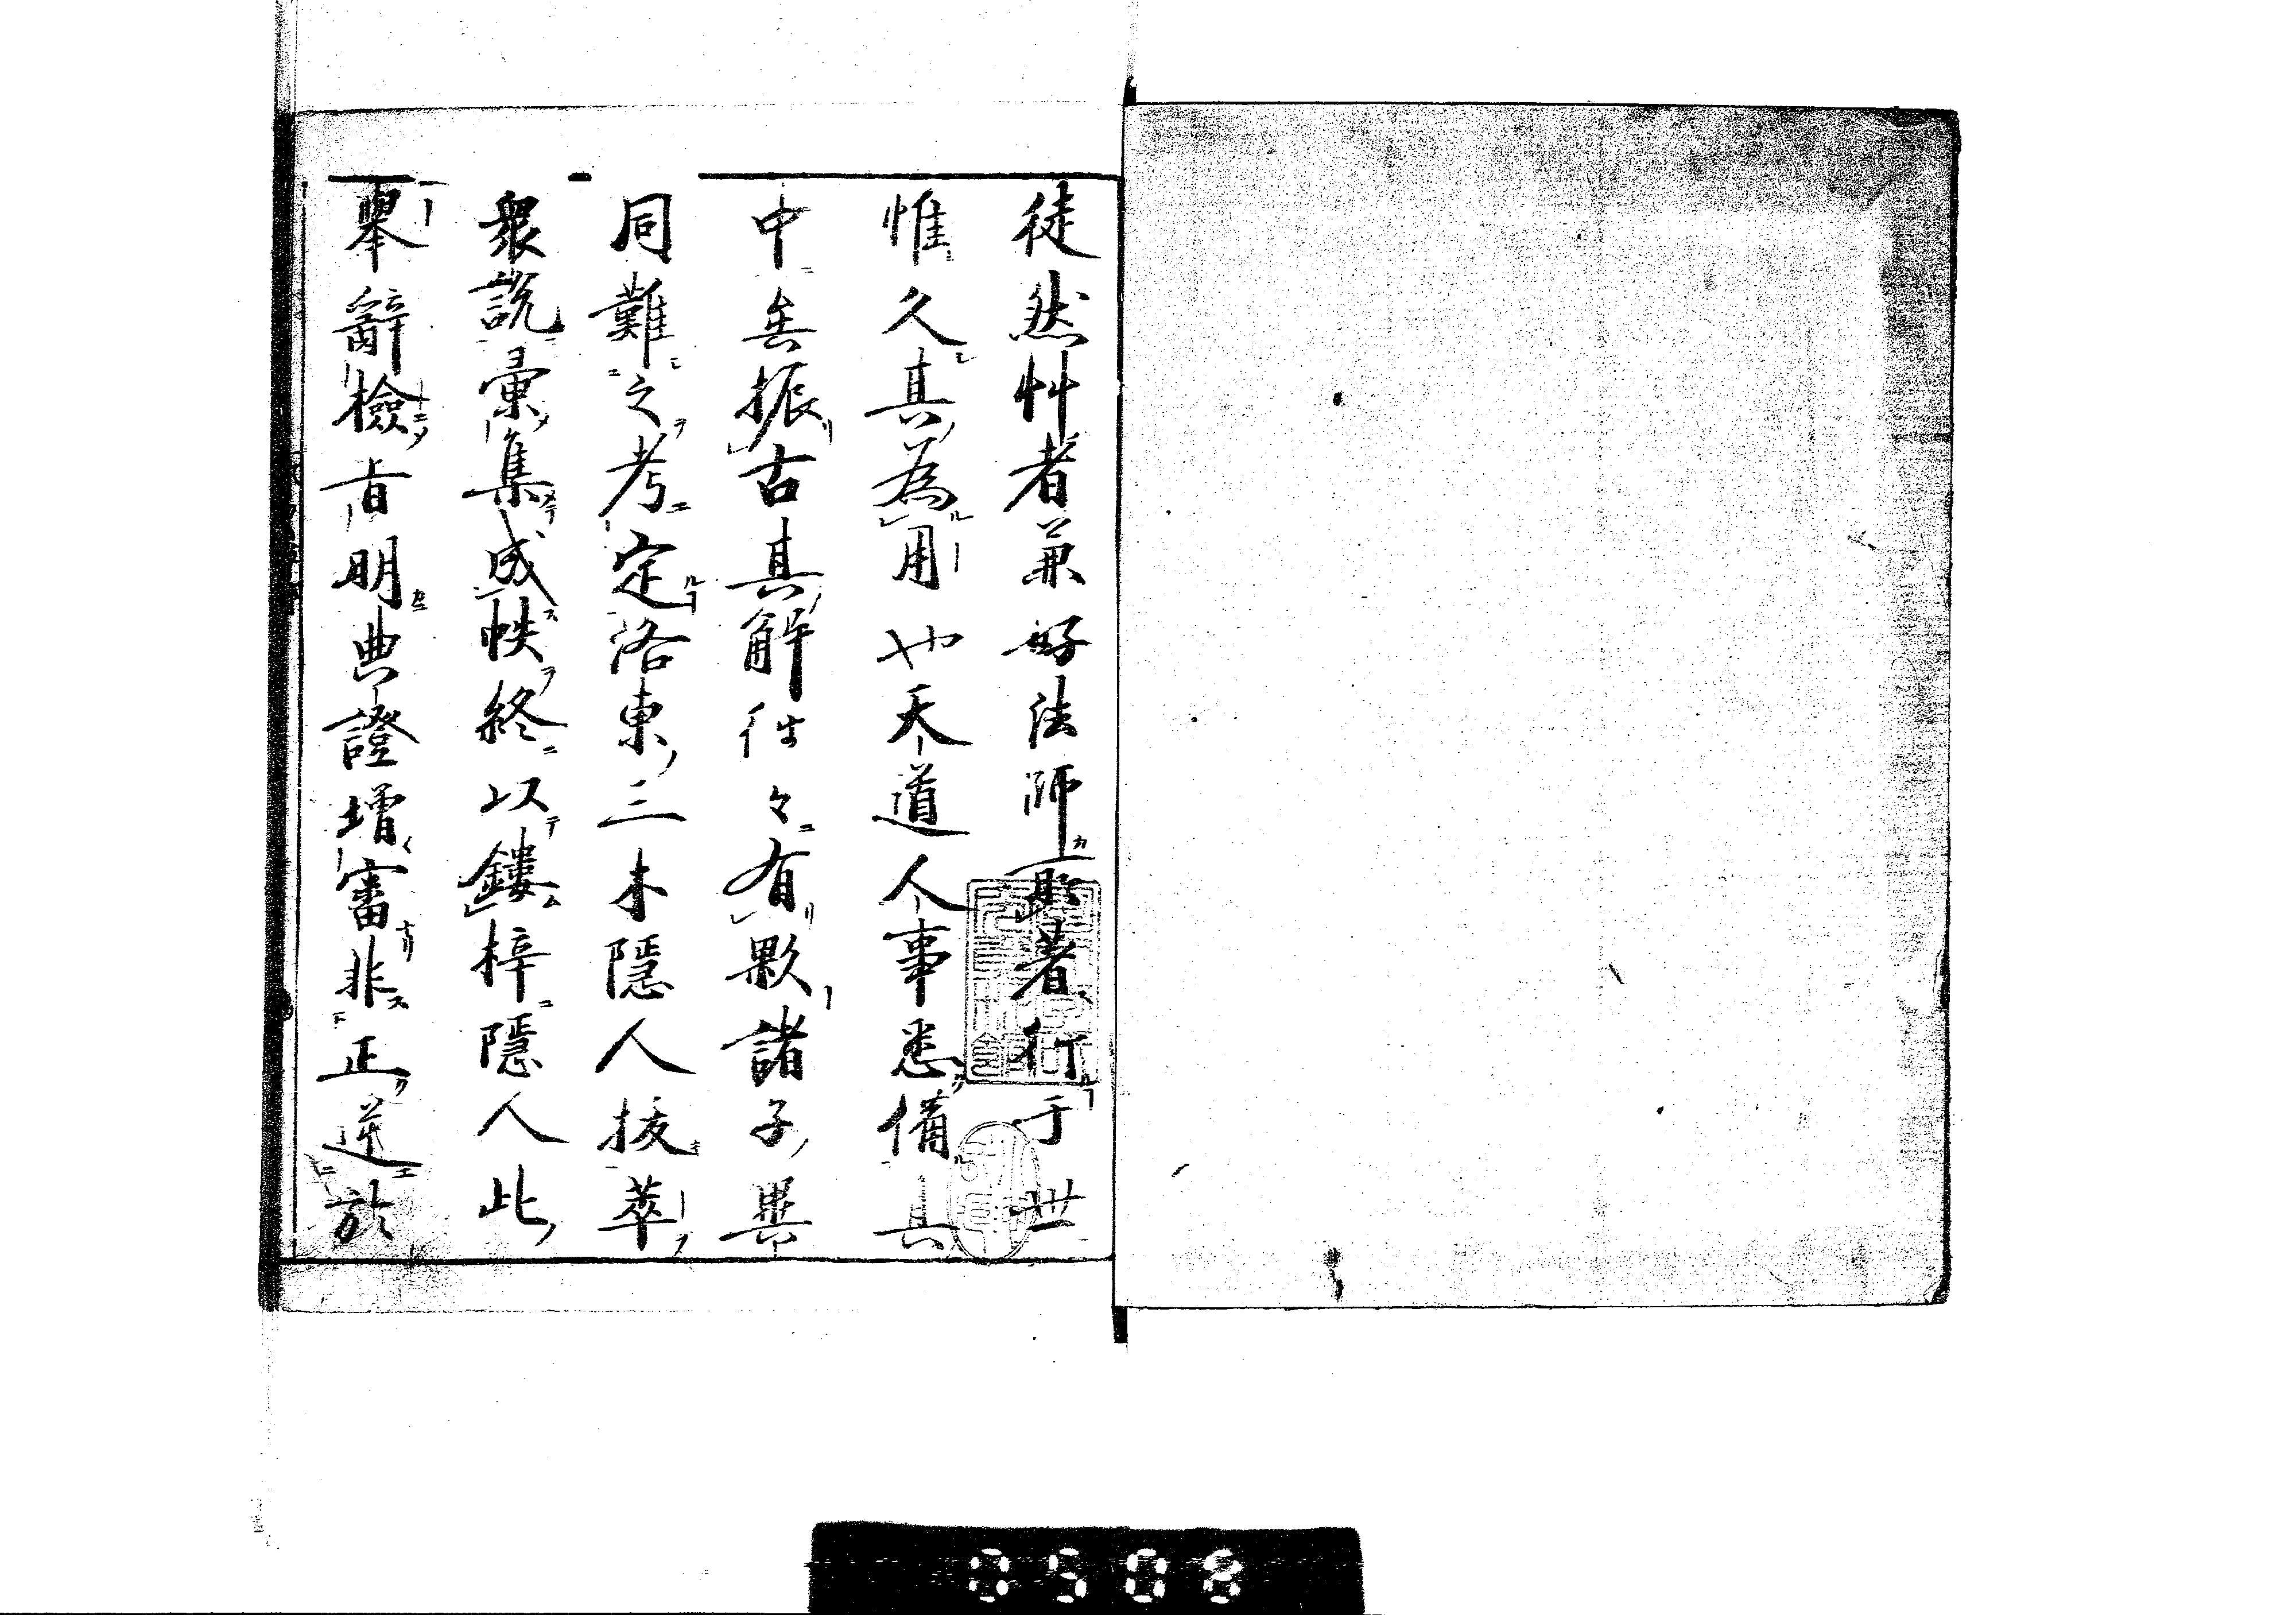 徒然艸者兼好法師所著行于世
惟久其為用也天道人事悉備其
中矣振古其解往々有歟諸子異
同難之考定洛東三木隠人拔萃
衆説彙集成帙終以鏤梓隠人此
舉辭檢旨明典證增審非正逆於
0502